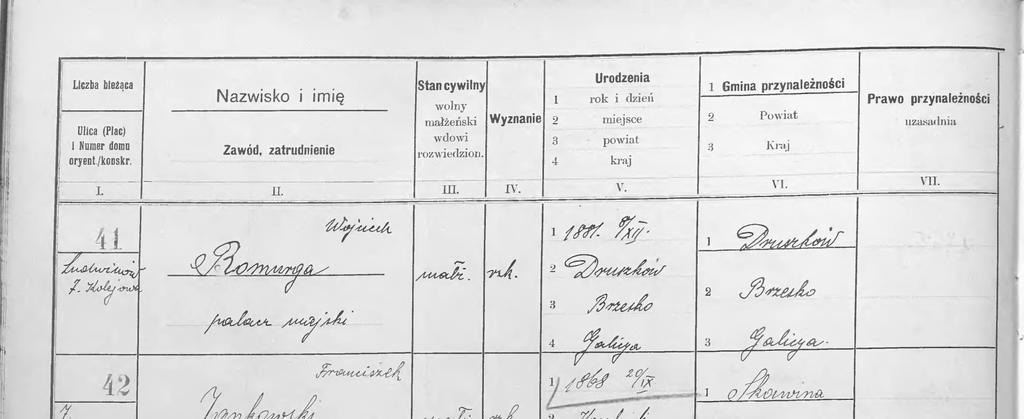 Liczba bieżąca
Ulica (Plac)
i Numer domu
oryent./konskr.
I.
Nazwisko i imię
Zawód, zatrudnienie
II.
Stan cywilny
wolny
małżeński
wdowi
rozwiedzion.
III.
Wyznanie
IV.
Urodzenia
1 rok i dzień
2 miejsce
3 powiat
4 kraj
V.
1 Gmina przynależności
2 Powiat
3 Kraj
VI.
Prawo przynależności
uzasadnia
VII.
41
Ludwinów
7. Kolejowa
Wojciech
Romurga
palacz miejski
małż.
rzk.
1 1881. 8/XII.
2 Druszków
3 Brzesko
4 Galicya
1 Druszków
2 Brzesko
3 Galicya.
42
7.
Franciszek
Jankowski
1 1868 29/IX
2
1 Skawina